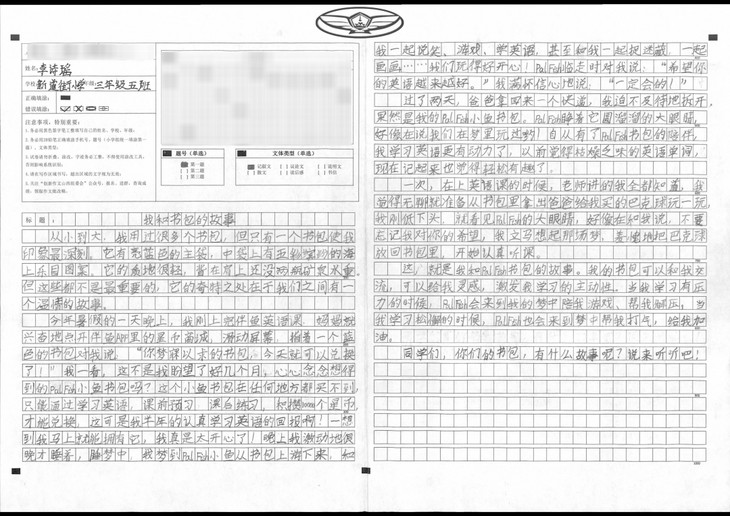 姓名:卓诗瑶
学校:新道街小学 年级:三年级五班
正确填涂:
错误填涂:
注意事项,特别重要:
题号(单选)
文体类型(单选)
第一题
第二题
第三题
记叙文
议论文
说明文
散文
读后感
书信
标题:我和书包的故事
从小到大,我用过很多个书包,但只有一个书包使我
印象最深刻。它有宽蓝色的主袋,中袋上有
上乐园图案。它的面料很轻,背在身上还没两瓶矿泉水重。
但这些都不是最重要的,它的奇特之处在于我们之间有一
个温情的故事。
今年暑假的一天晚上,我刚上完伴鱼英语课,妈妈就
兴奋地点开伴鱼APP里的星币商城,滑动屏幕,指着一个蓝
色的书包对我说:“你梦寐以求的书包,今天就可以兑换
了!”我一看,这不是我盼望了好几个月。心心念念想得
到的PalFish小鱼书包吗?这个小鱼书包在任何地方都买不到,
只能通过学习英语,课前预习、课后练习,积攒 个星币
才能兑换,这可是我半年的认真学习英语的回报啊!一想
到我马上就能拥有它,我真是太开心了!晚上我激动地很
晚才睡着,睡梦中,我梦到PalFish小鱼从书包上游下来,和
我一起说笑、游戏、学英语,甚至和我一起捉迷藏、一起
画画……我们玩得好开心!PalFish临走时对我说:“希望你
的英语越来越好。”我满怀信心地说:“一定会的!”
过了两天,爸爸拿回来一个快递,我迫不及待地拆开,
果然是我的PalFish小鱼书包。PalFish睁着它圆溜溜的大眼睛,
好像在说我们在梦里玩过哟!自从有了PalFish书包的陪伴,
我学习英语更有动力了,以前觉得枯燥乏味的英语单词,
现在记起来也觉得轻松有趣了。
一次,在上英语课的时候,老师讲的我全都知道,我
觉得无聊就准备从书包里拿出爸爸给我买的巴克球玩一玩,
我刚低下头,就看见PalFish的大眼睛,好像在和我说,不要
忘记我对你的希望,我立马想起那场梦,羞愧地把巴克球
放回书包里,开始认真听课。
这,就是我和PalFish书包的故事。我的书包可以和我交
流,可以给我灵感,激发我学习的主动性。当我学习有压
力的时候,PalFish会来到我的梦中陪我游戏、帮我解压;当
我学习松懈的时候,PalFish也会来到梦中帮我打气,给我加
油。
同学们,你们的书包,有什么故事呢?说来听听吧!